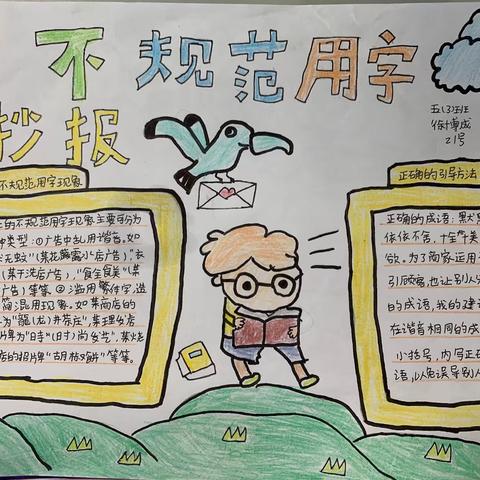 不规范用字
抄报
五(3)班
21号
不规范用字现象
的不规范用字现象主要可分为
种类型:①广告中乱用谐音。如
无蚊"(某花露水店广告)"衣
"(某干洗店广告),"食全食美"(某
广告)等等。②滥用繁体字,造
简混用现象。如某商店的
为"龍(龙)井茶庄",某理发店
牌为"(时)尚发艺",某火烧
店的招牌"胡 饼"等等。
正确的引导方法
正确的成语:默
依依不舍,十全十美
做。为了商家运用
引顾客,也让别人
的成语,我的建
在谐音相同的成
小括号,内写正
语,以免误导别人